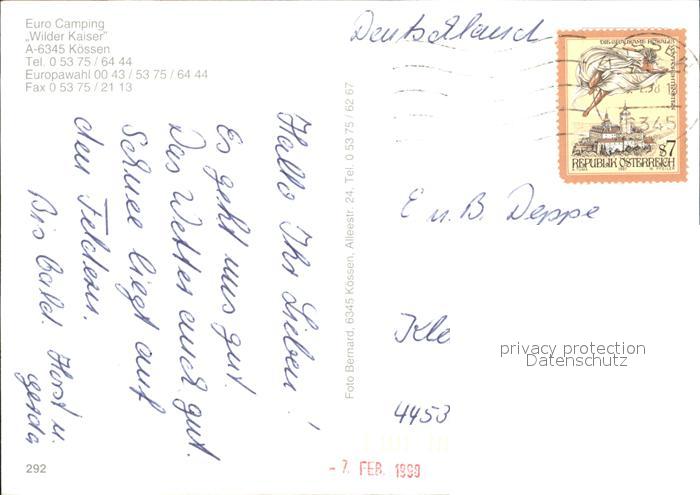 Euro Camping
„Wilder Kaiser"
A-6345 Kössen
Tel. 0 53 75 / 64 44
Europawahl 00 43 / 53 75 / 64 44
Fax 0 53 75 / 21 13
Hallo Ihr Lieben!
Es geht uns gut.
Das Wetter auch gut.
Schnee liegt auf
den Feldern.
Bis bald. Horst u.
Gerda
292
Foto Bernard, 6345 Kössen, Alleestr. 24, Tel. 0 53 75 / 62 67
Deutschland
6345
$7
REPUBLIK ÖSTERREICH
E u. B. Deppe
Kle
privacy protection
Datenschutz
4453
- 7. FEB. 1990